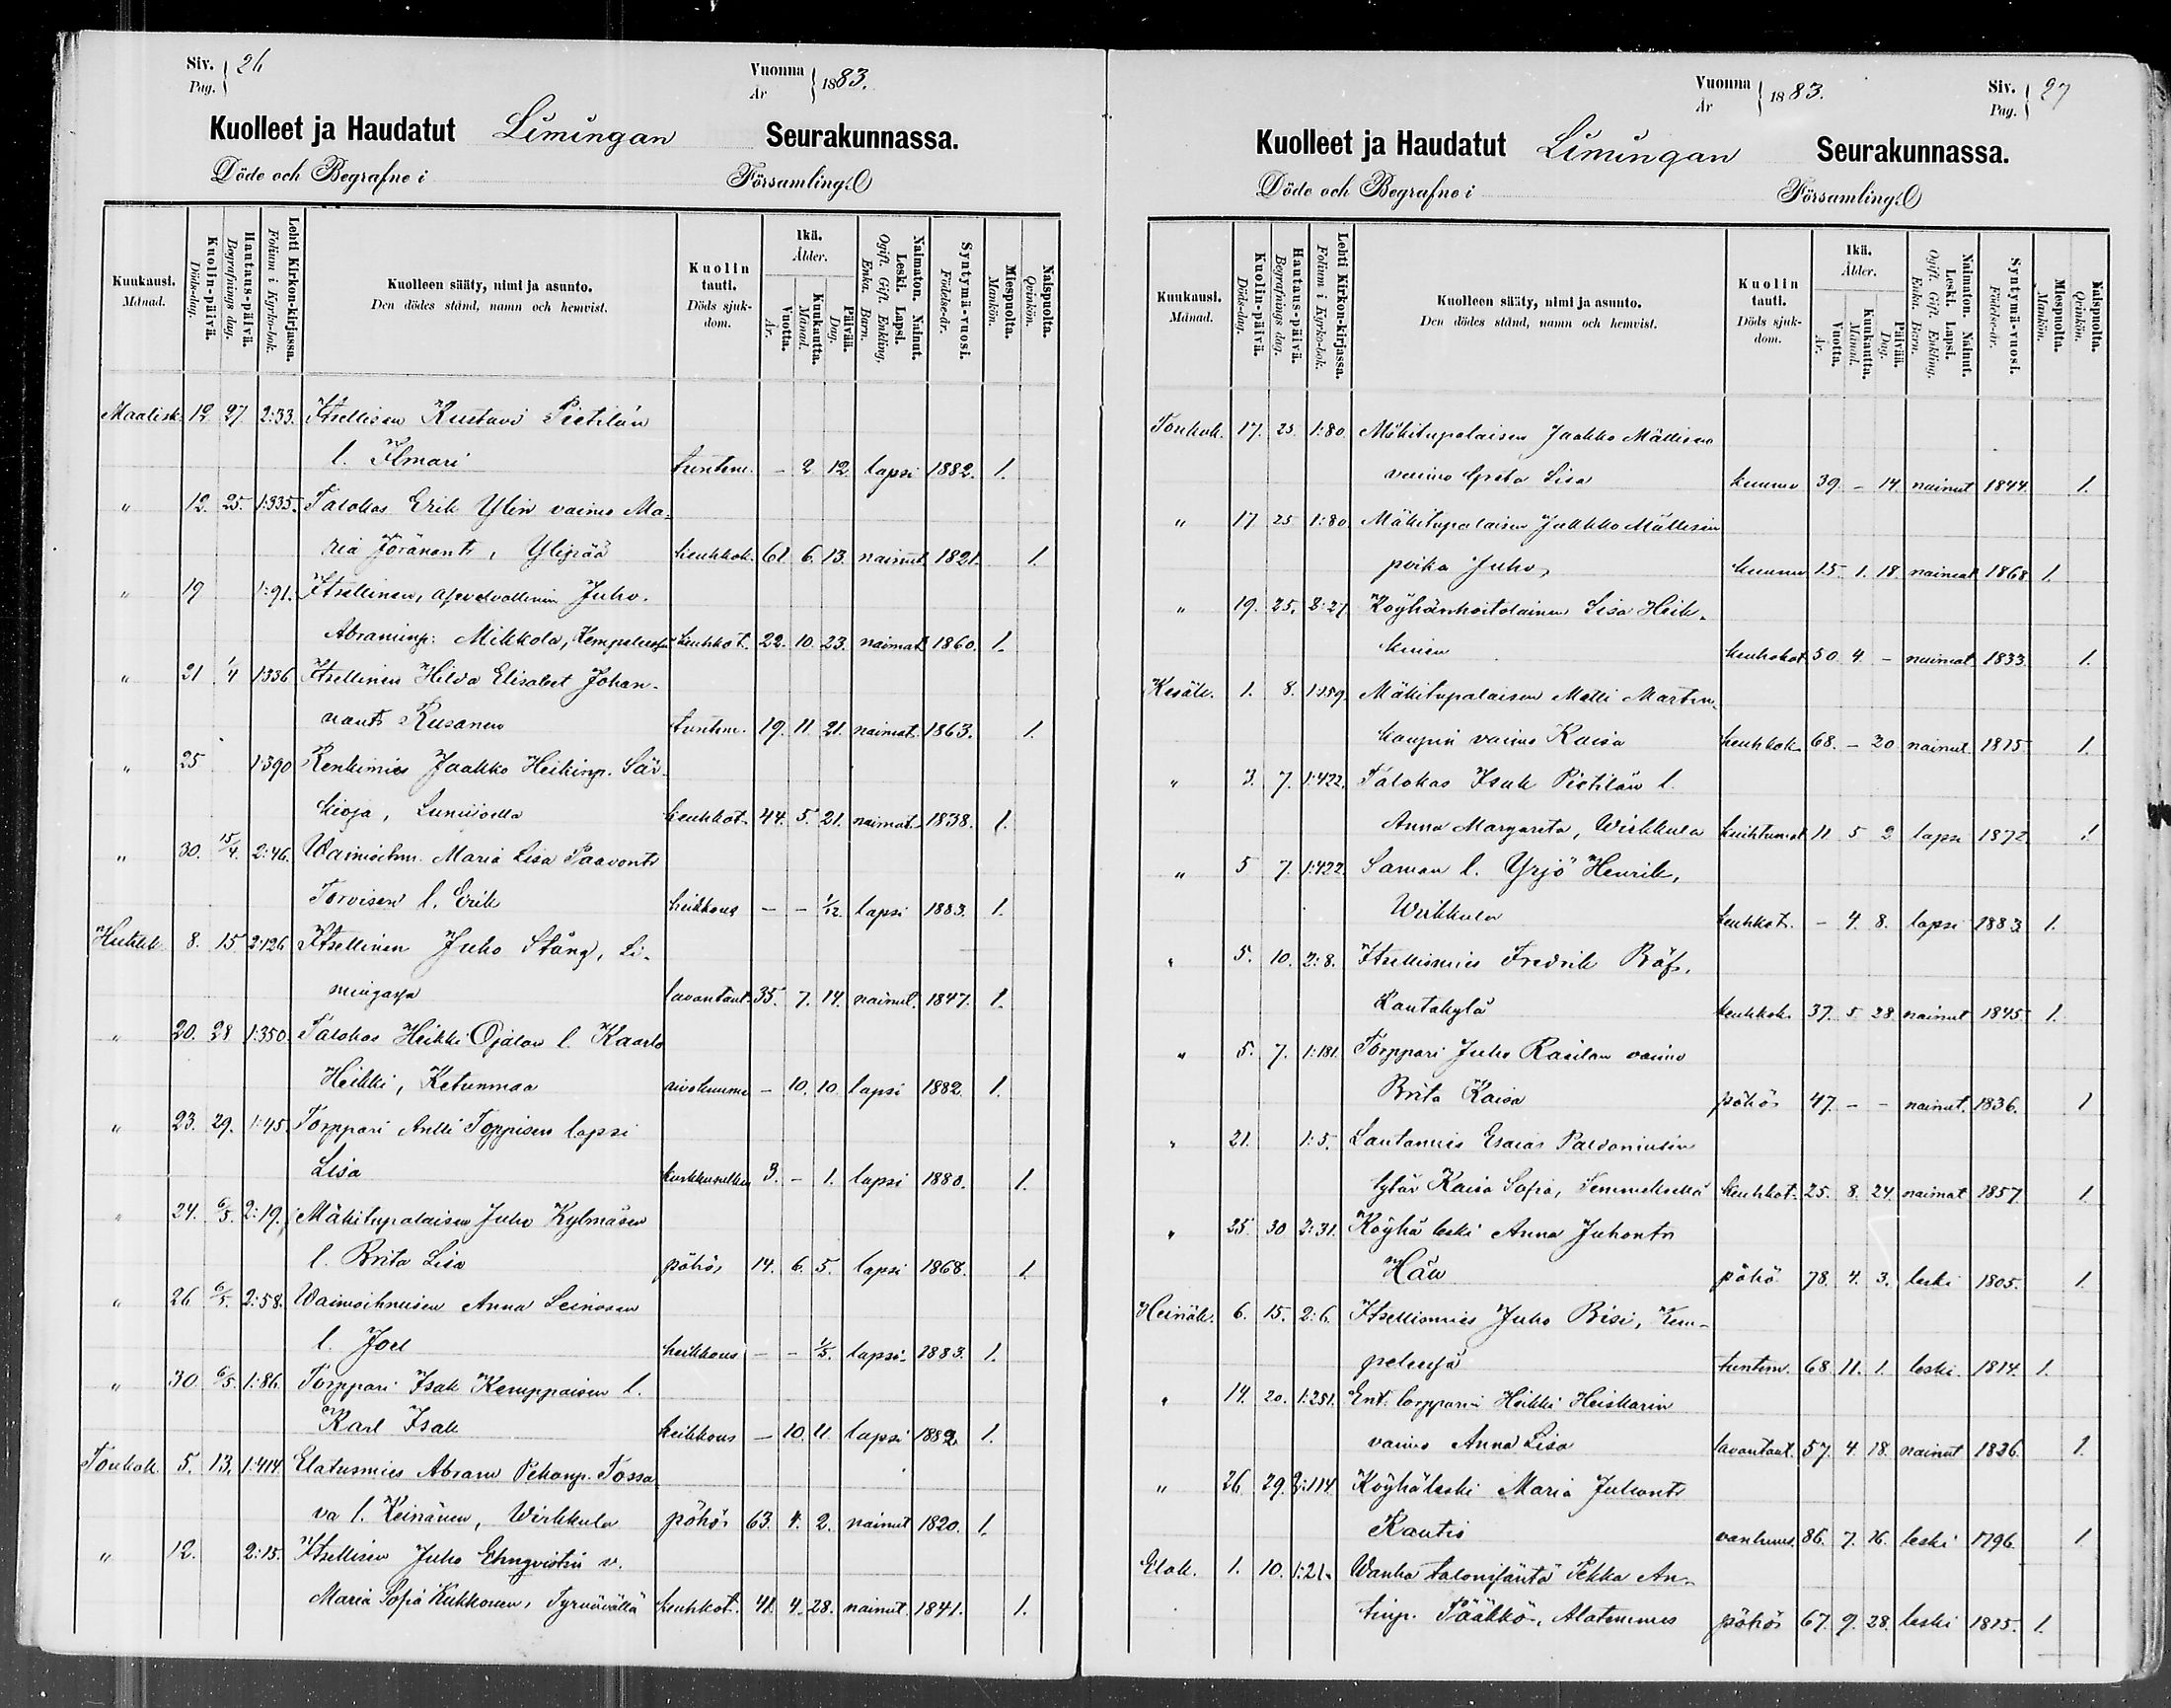 Siv. Pag. 26
Vuonna År 1883.
Kuolleet ja Haudatut Limingan Seurakunnassa.
Döde och Begrafne i Församling.
Kuukausi. Månad.
Kuolin-päivä. Döds-dag.
Hautaus-päivä. Begrafnings dag.
Lehti Kirkon-kirjassa. Folium i Kyrko-bok.
Kuolleen sääty, nimi ja asunto.
Den dödes stånd, namn och hemvist.
Kuolin tauti. Döds sjukdom.
Ikä. Ålder.
Vuotta. År.
Kuukautta. Månad.
Päivää. Dag.
Naimaton. Nainut. Leski. Lapsi.
Ogift. Gift. Enkling. Enka. Barn.
Syntymä-vuosi. Födelse-år.
Miespuolta. Mankön.
Naispuolta. Qvinkön.
Maalisk. 12 27. 2:33. Itsellisen Kustavi Pietilän
l. Ilmari tuntem. - 2 12. lapsi 1882. 1.
" 12. 25. 1:335. Talokas Erik Ylin vaimo Ma-
ria Jöranentr, Ylipää keuhkok. 61. 6. 13. nainut. 1821. 1.
" 19 1:91. Itsellinen, Juho
Abraminp. Mikkola, keuhkot. 22. 10. 23. naimat. 1860. 1.
" 21 1/4 1:336 Itsellinen Hilda Elisabet Johan-
nantr Rusanen tuntem. 19. 11 21. naimat. 1863. 1.
" 25 1:390 Renkimies Jaakko Heikinp. Sär-
kioja, Lumijoella keuhkot. 44. 5. 21. naimat. 1838. 1.
" 30. 15/4. 2:46. Waimoihm. Maria Lisa Paavontr
Torvisen l. Erik heikkous - - 1/12. lapsi 1883. 1.
Huhtik. 8. 15 2:126 Itsellinen Juho Stång, Li-
mingassa lavantaut. 35. 7. 14. nainut. 1847. 1.
" 20. 28 1:350. Talokas Heikki Ojalan l. Kaarlo
Heikki, Ketunmaa aivokuume - 10. 10 lapsi 1882. 1.
" 23. 29. 1:45. Torppari Antti Toppisen lapsi
Lisa 3. - 1. lapsi 1880. 1.
" 24. 6/5. 2:19. Mäkitupalaisen Juho Kylmäsen
l. Brita Lisa pöhös 14. 6. 5. lapsi 1868. 1.
" 26 6/5. 2:58. Waimoihmisen Anna Leinosen
l. Joel heikkous - - 1/5. lapsi. 1883. 1.
" 30. 6/5. 1:86. Torppari Isak Kemppaisen l.
Karl Isak heikkous - 10. 11. lapsi 1882. 1.
Toukok. 5. 13. 1:414. Elatusmies Abram Pekanp. Tossa
va l. Keinänen, Wirkkula pöhös 63. 4. 2. nainut 1820. 1.
" 12. 2:15. Itsellisen Juho Ehnqvistin v.
Maria Sofia Kukkonen, Tyrnävällä keuhkot. 41. 4. 28. nainut. 1841. 1.
Vuonna År 1883.
Siv. Pag. 27
Kuolleet ja Haudatut Limingan Seurakunnassa.
Döde och Begrafne i Församling.
Kuukausi. Månad.
Kuolin-päivä. Döds-dag.
Hautaus-päivä. Begrafnings dag.
Lehti Kirkon-kirjassa. Folium i Kyrko-bok.
Kuolleen sääty, nimi ja asunto.
Den dödes stånd, namn och hemvist.
Kuolin tauti. Döds sjukdom.
Ikä. Ålder.
Vuotta. År.
Kuukautta. Månad.
Päivää. Dag.
Naimaton. Nainut. Leski. Lapsi.
Ogift. Gift. Enkling. Enka. Barn.
Syntymä-vuosi. Födelse-år.
Miespuolta. Mankön.
Naispuolta. Qvinkön.
Toukok. 17. 25. 1:80. Mäkitupalaisen Jaakko Mällisen
vaimo Greta Lisa kuume 39. - 14. nainut 1844. 1.
" 17 25 1:80. Mäkitupalaisen Jaakko Mällisen
poika Juho, kuume 15. 1. 18. naimat 1868. 1.
" 19. 25. 2:27. Köyhänhoitolainen Lisa Heik-
kinen keuhkot. 50. 4. - naimat 1833. 1.
Kesäk. 1. 8. 1:159. Mäkitupalaisen Matti Martin-
kaupin vaimo Kaisa keuhkok. 68. - 20 nainut. 1815. 1.
" 3. 7. 1:422. Talokas Isak Pietilän l.
Anna Margareta, Wirkkula 11 5 2 lapsi 1872. 1.
" 5 7. 1:422. Saman l. Yrjö Henrik,
Wirkkula keuhkot. - 4. 8. lapsi 1883. 1.
" 5. 10. 2:8. Itsellismies Fredrik Räf,
Rantakylä keuhkok. 37. 5 28 nainut 1845. 1.
" 5. 7. 1:181. Torppari Juho Rasilan vaimo
Brita Kaisa pöhös 47. - - nainut. 1836. 1
" 21. 1:5. Lautamies Esaias Paldaniuksen
tytär Kaisa Sofia, Temmeksellä keuhkot. 25. 8. 24. naimat 1857. 1.
" 25. 30 2:31. Köyhä leski Anna Juhontr
pöhö 78. 4. 3. leski 1805. 1.
Heinäk. 6. 15. 2:6. Itsellismies Juho Bisi, Kem-
peleessä tuntem. 68 11. 1. leski 1814. 1.
" 14. 20. 1:251. Ent. torpparin Heikki Heiskarin
vaimo Anna Lisa lavantaut. 57. 4. 18. nainut 1826. 1.
" 26. 29. 2:114. Köyhäleski Maria Juhontr
Rautio vanhuus. 86. 7. 16. leski 1796. 1
Elok. 1. 10. 1:21. Wanha talonisäntä Pekka An-
tinp. Pääkkö, Alatemmes pöhös 67. 9. 28. leski 1815. 1.